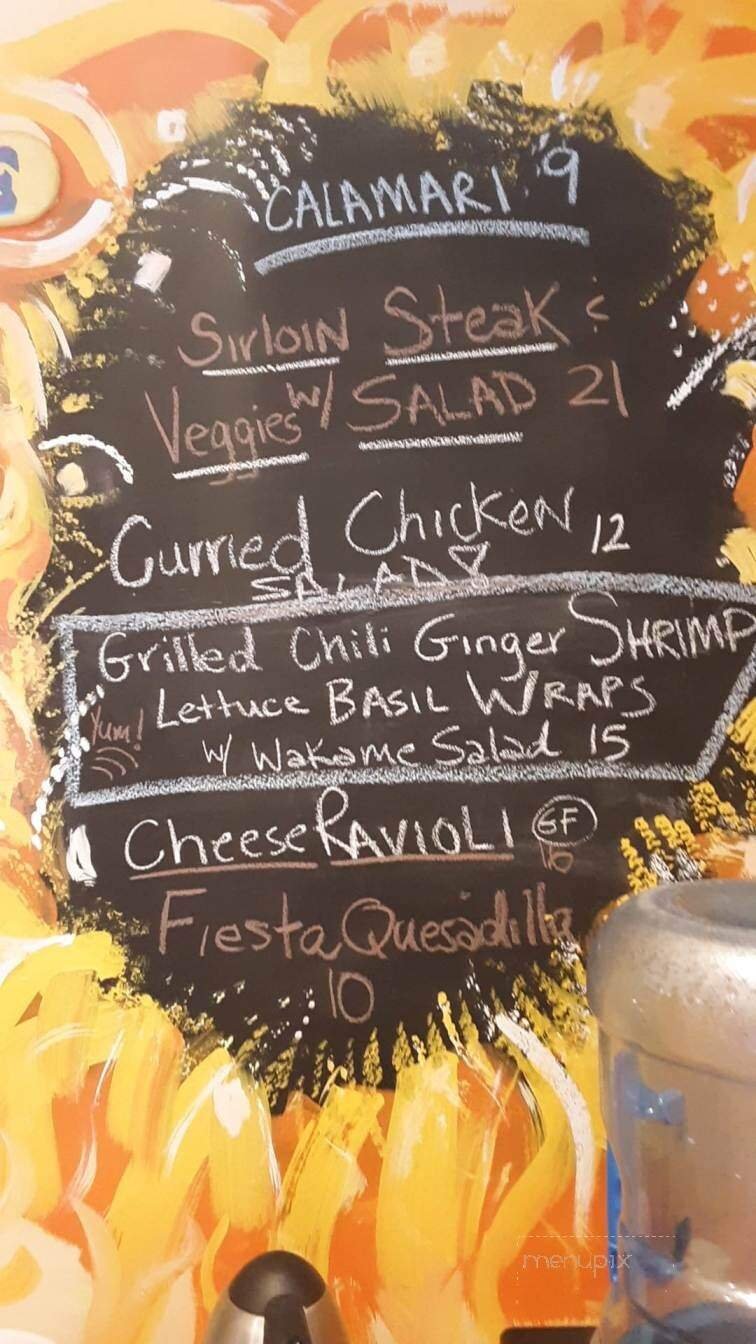 CALAMARI 9
Sirloin Steak &
Veggies w/ SALAD 21
Curried Chicken 12
SALAD
Grilled Chili Ginger SHRIMP
Lettuce BASIL WRAPS
Yum!
w/ Wakame Salad 15
Cheese RAVIOLI GF
Fiesta Quesadilla
10
menupix